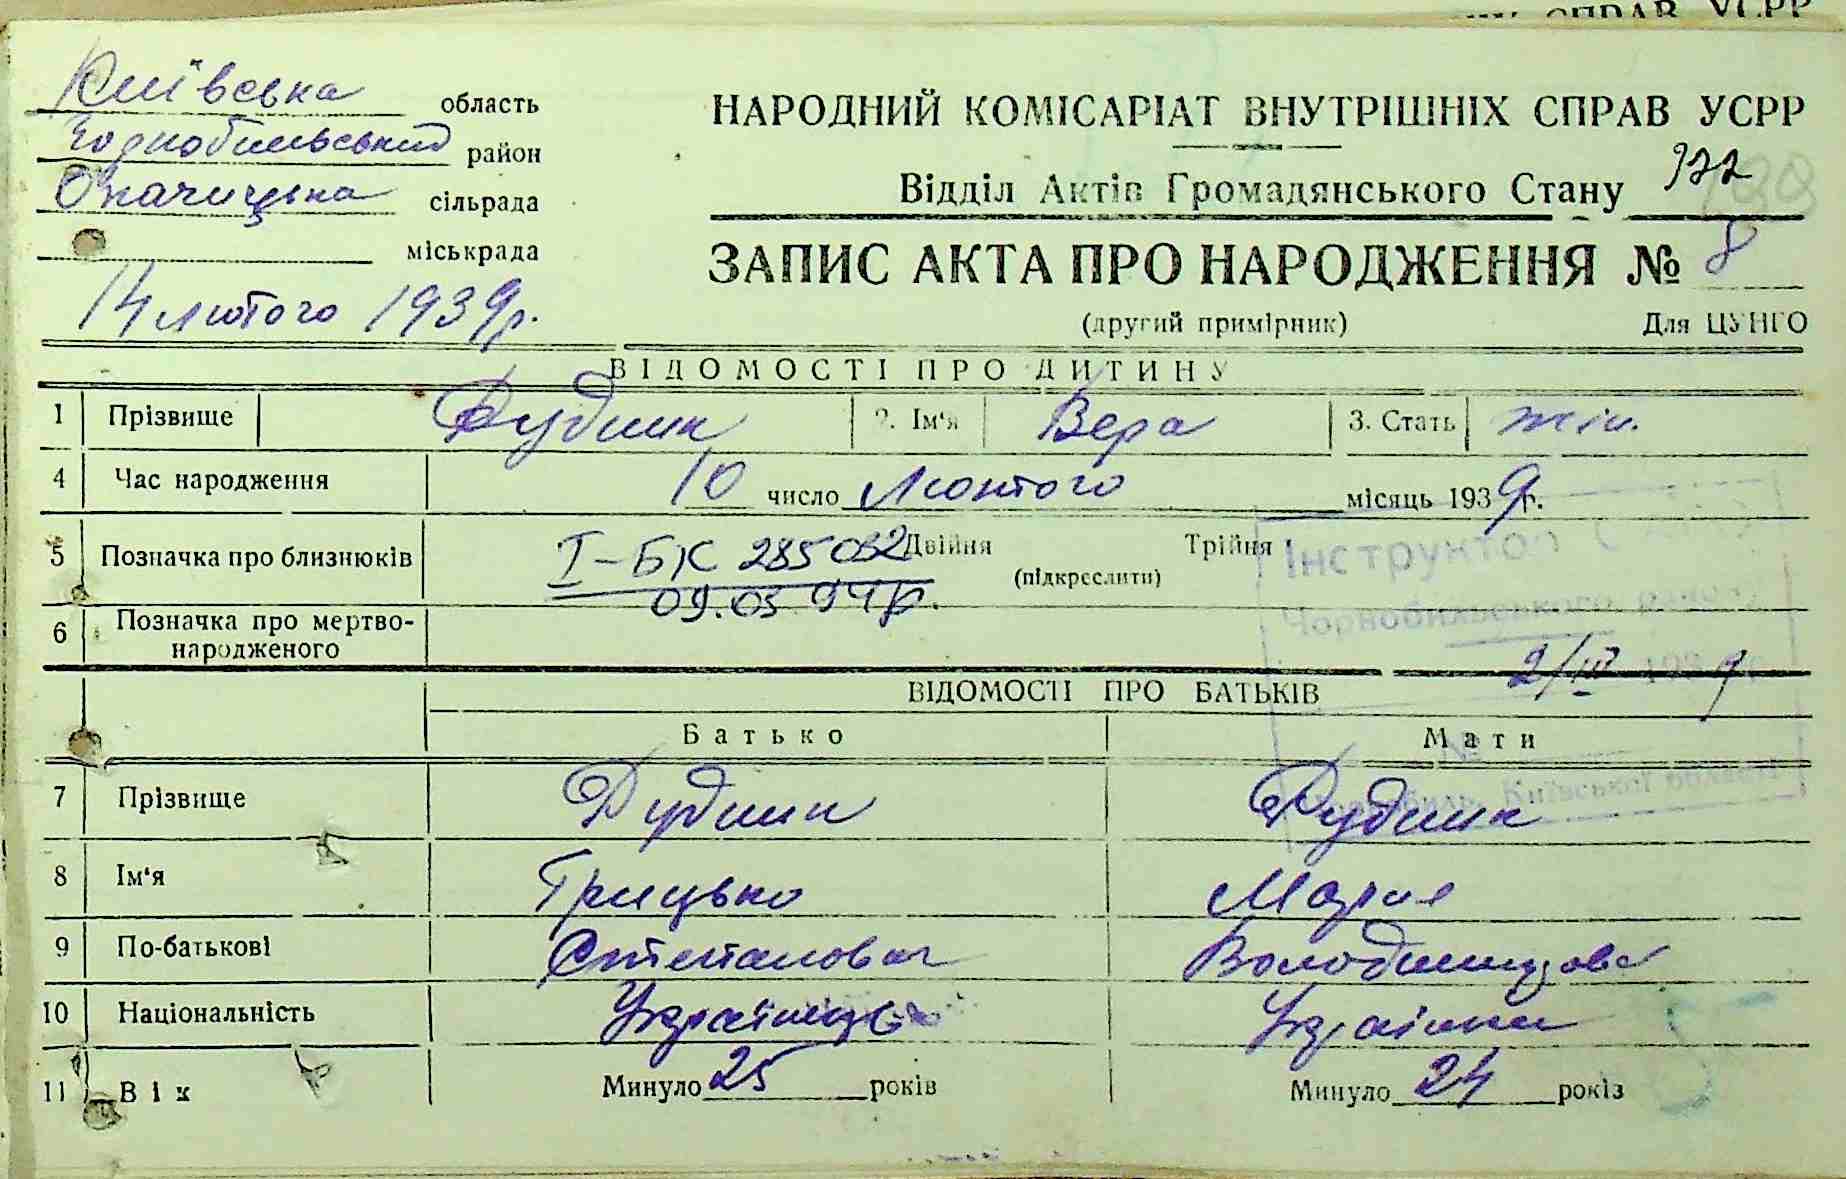 СПРАВ УСРР
Київська область
Чорнобильський район
Опачицька сільрада
міськрада
14 лютого 1939р.
НАРОДНИЙ КОМІСАРІАТ ВНУТРІШНІХ СПРАВ УСРР
Відділ Актів Громадянського Стану
ЗАПИС АКТА ПРО НАРОДЖЕННЯ № 8
(другий примірник) Для ЦУНГО
ВІДОМОСТІ ПРО ДИТИНУ
1 Прізвище Дудник 2. Ім'я Вера 3. Стать жін.
4 Час народження 10 число Лютого місяць 1939 р.
5 Позначка про близнюків I-БК 285032 Двійня Трійня
(підкреслити)
09.03.94р.
6 Позначка про мертво-
народженого
Інструктор
Чорнобильського району
2/III 1939
ВІДОМОСТІ ПРО БАТЬКІВ
Батько Мати
№
Київської області
7 Прізвище Дудник Дудник
8 Ім'я Грицько Мария
9 По-батькові Степанович Володимировна
10 Національність Українець Українка
11 Вік Минуло 25 років Минуло 24 років